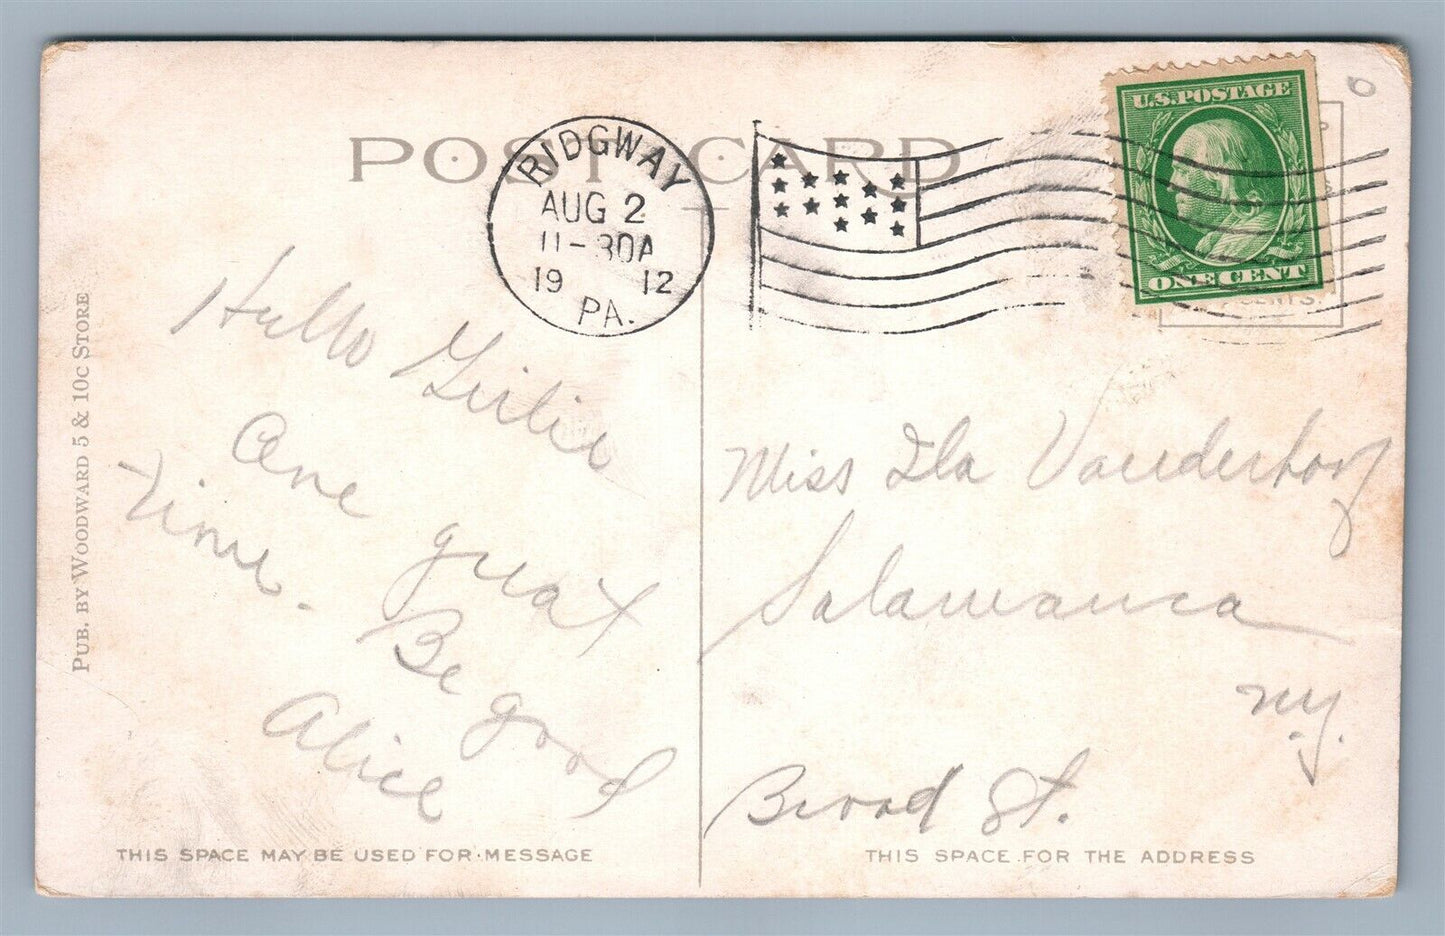 POST CARD
RIDGWAY
AUG 2
11-30A
19 12
PA.
U.S. POSTAGE
ONE CENT
CENTS.
PUB. BY WOODWARD 5 & 10C STORE
Hello Girlie
One great
Time.
Be good
Alice
Miss Ila Vanderhoof
Salamanca
N.Y.
Broad St.
THIS SPACE MAY BE USED FOR MESSAGE
THIS SPACE FOR THE ADDRESS